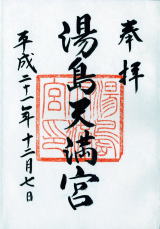 奉拝
湯島天満宮
平成二十二年十二月七日